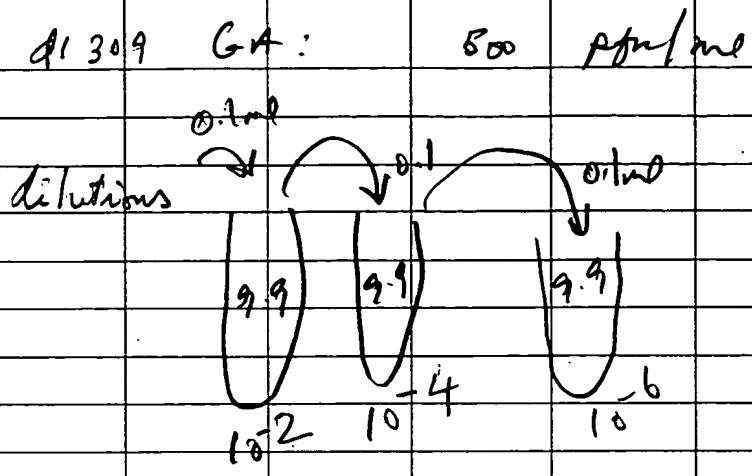 dl 309 GA: 500 pfu/ml
0.1ml
0.1
0.1ml
dilutions
9.9 9.9 9.9
10-2 10-4 10-6